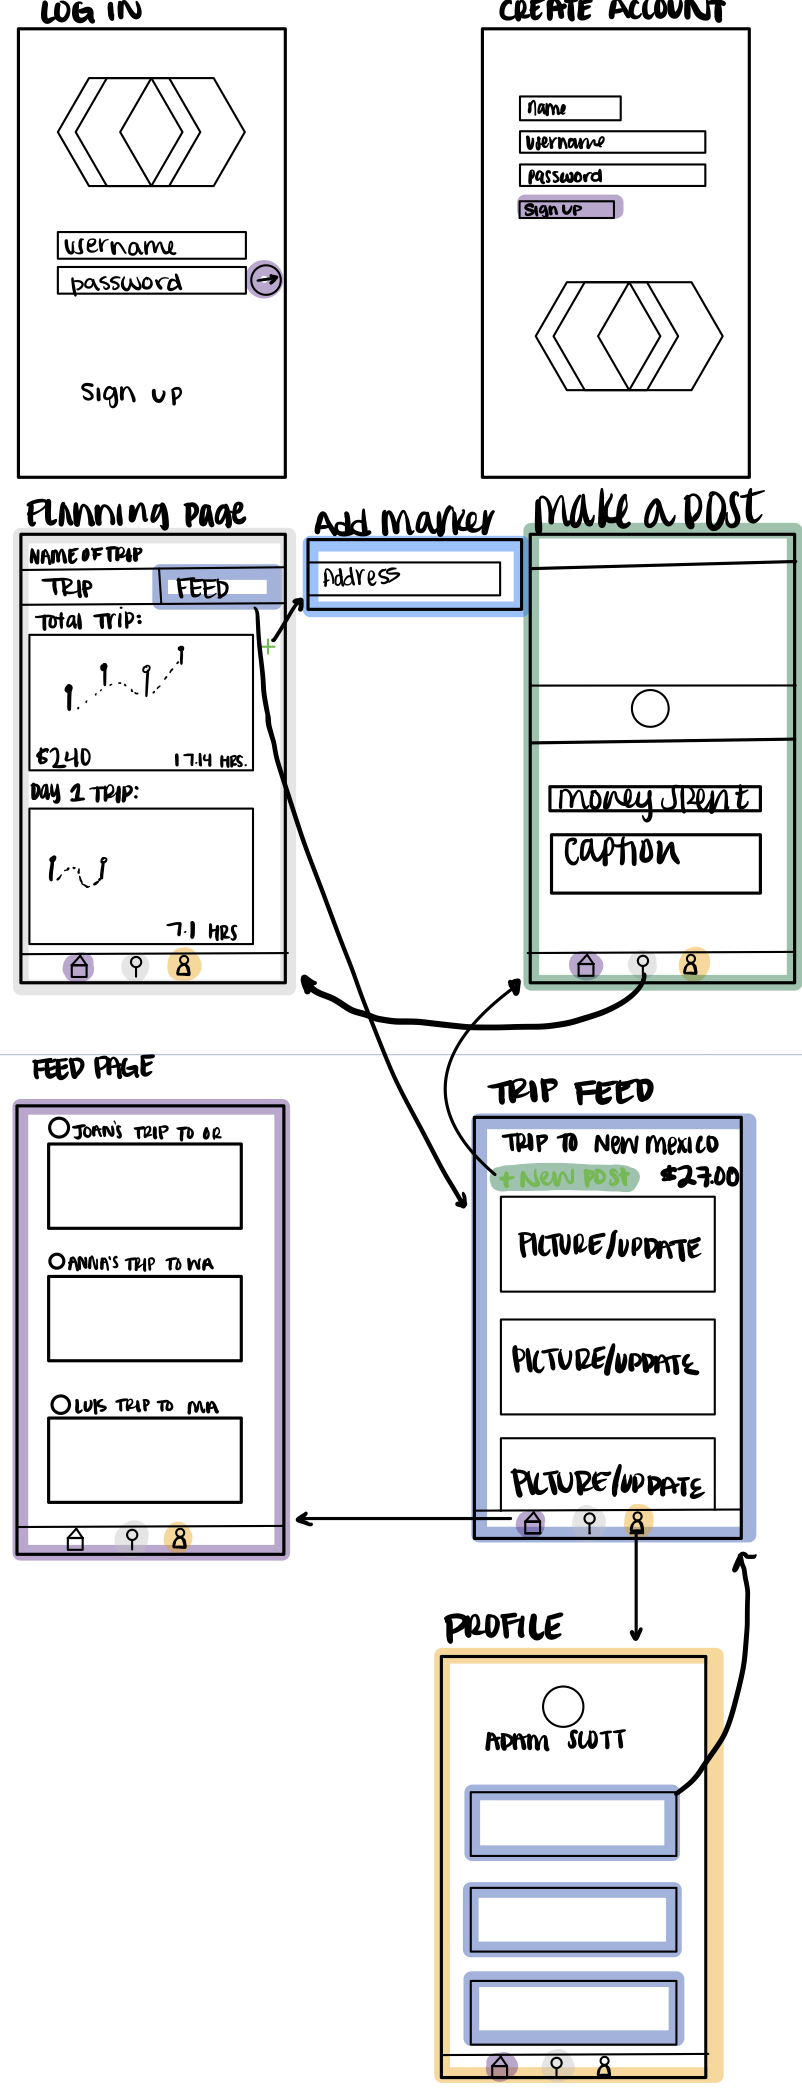 LOG IN
username
password
Sign up
CREATE ACCOUNT
name
username
password
Sign up
Planning page
NAME OF TRIP
TRIP
FEED
Total Trip:
+
$240
17.14 HRS.
Day 1 TRIP:
7.1 HRS
Add Marker
Address
Make a post
money spent
caption
FEED PAGE
JOAN'S TRIP TO OR
ANNA'S TRIP TO WA
LUIS TRIP TO MA
TRIP FEED
TRIP TO NEW MEXICO
+ NEW POST
$27.00
PICTURE/UPDATE
PICTURE/UPDATE
PICTURE/UPDATE
PROFILE
ADAM SCOTT